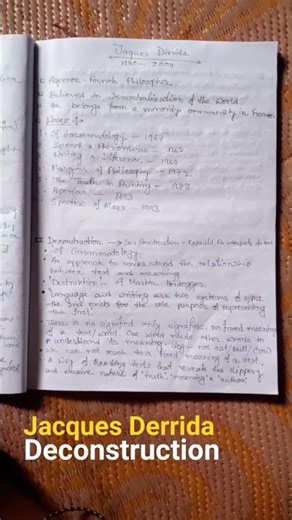 Jacques Derrida
1930 - 2004
French Philosopher
Believed in Decentralization of the World
He belongs from a minority community in France
Works :-
Of Grammatology - 1967
Speech & Phenomena -
Writing & Difference -
Margins of Philosophy -
The Truth in Painting - 1978
Aporias - 1993
Specters of Marx - 1993
Deconstruction →
of Grammatology
An approach to understand the relationship
between text and meaning
"Destruktion" - of Martin Heidegger
Language and writing are two systems of signs.
the 2nd exists for the sole purpose of representing
the first
There is no signified only signifiers, no fixed meaning
of a text/word. One word needs other words to
understand its meaning.
We can not reach to a fixed meaning of a text.
A Way of Reading texts that reveals the slippery
and elusive nature of "truth", "meaning" & "author"
Jacques Derrida
Deconstruction